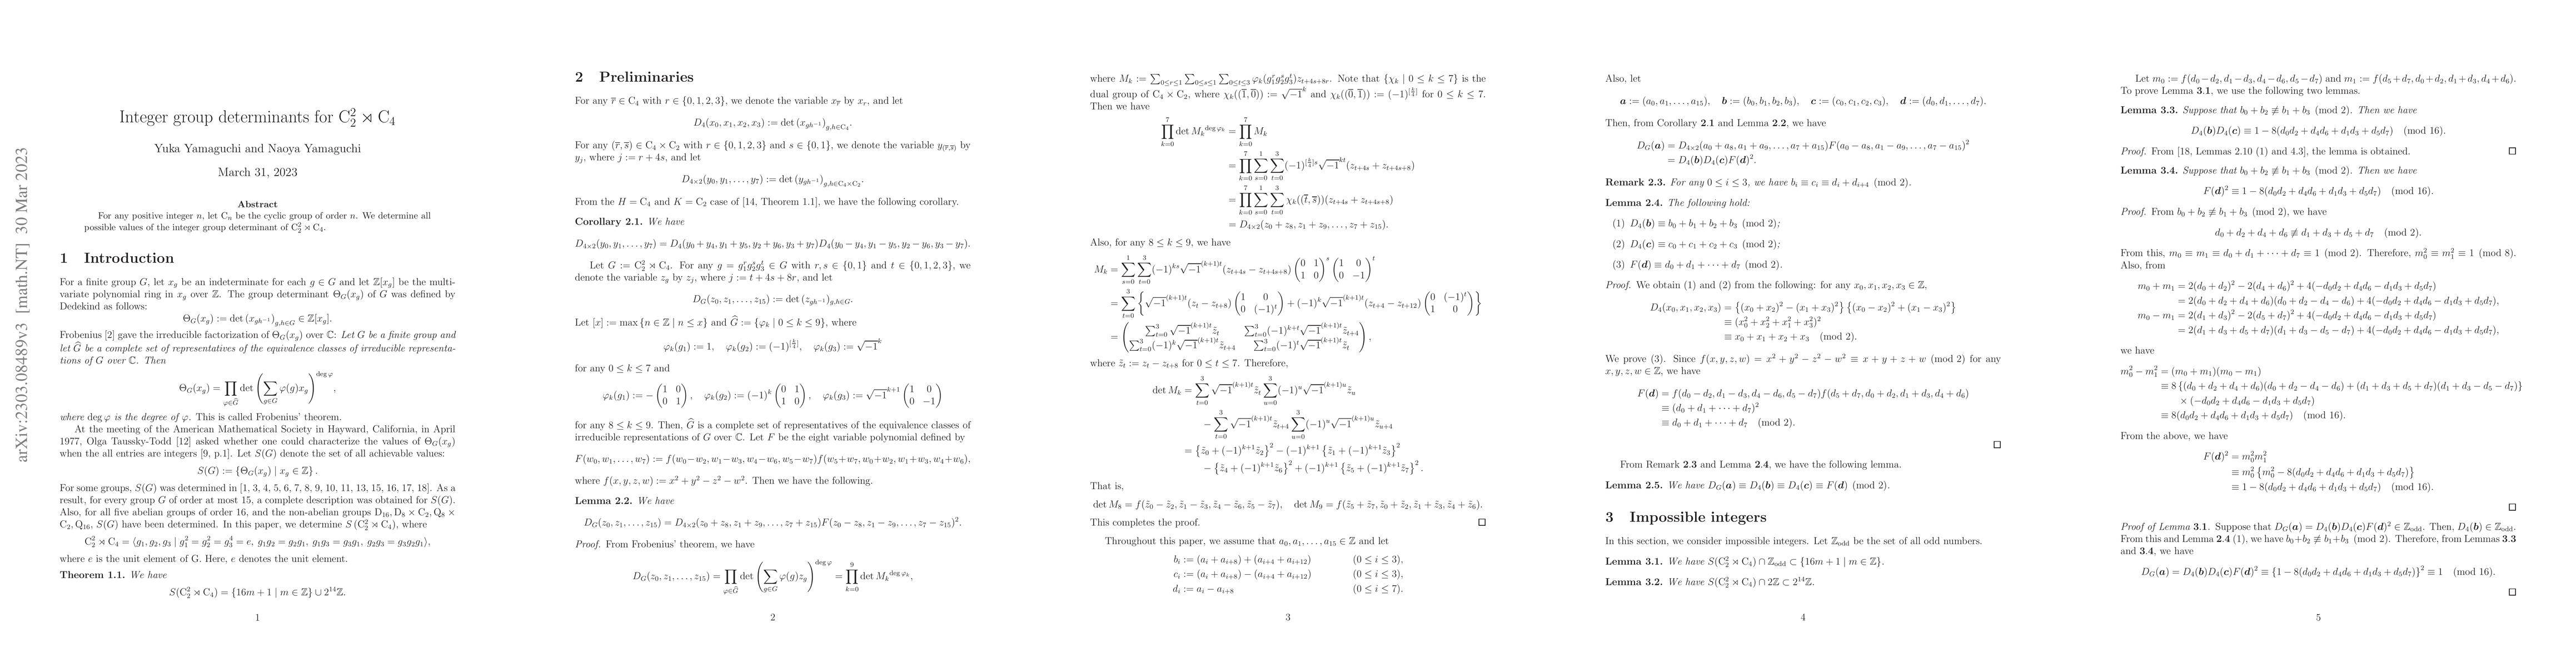 arXiv:2303.08489v3 [math.NT] 30 Mar 2023
Integer group determinants for C_2^2 ⋊ C_4
Yuka Yamaguchi and Naoya Yamaguchi
March 31, 2023
Abstract
For any positive integer n, let C_n be the cyclic group of order n. We determine all
possible values of the integer group determinant of C_2^2 ⋊ C_4.
1 Introduction
For a finite group G, let x_g be an indeterminate for each g ∈ G and let ℤ[x_g] be the multi-
variate polynomial ring in x_g over ℤ. The group determinant Θ_G(x_g) of G was defined by
Dedekind as follows:
Θ_G(x_g) := det (x_{gh^{-1}})_{g,h∈G} ∈ ℤ[x_g].
Frobenius [2] gave the irreducible factorization of Θ_G(x_g) over ℂ: Let G be a finite group and
let Ĝ be a complete set of representatives of the equivalence classes of irreducible representa-
tions of G over ℂ. Then
Θ_G(x_g) = ∏_{φ∈Ĝ} det (∑_{g∈G} φ(g)x_g)^{deg φ},
where deg φ is the degree of φ. This is called Frobenius' theorem.
At the meeting of the American Mathematical Society in Hayward, California, in April
1977, Olga Taussky-Todd [12] asked whether one could characterize the values of Θ_G(x_g)
when the all entries are integers [9, p.1]. Let S(G) denote the set of all achievable values:
S(G) := {Θ_G(x_g) | x_g ∈ ℤ}.
For some groups, S(G) was determined in [1, 3, 4, 5, 6, 7, 8, 9, 10, 11, 13, 15, 16, 17, 18]. As a
result, for every group G of order at most 15, a complete description was obtained for S(G).
Also, for all five abelian groups of order 16, and the non-abelian groups D_16, D_8 × C_2, Q_8 ×
C_2, Q_16, S(G) have been determined. In this paper, we determine S (C_2^2 ⋊ C_4), where
C_2^2 ⋊ C_4 = ⟨g_1, g_2, g_3 | g_1^2 = g_2^2 = g_3^4 = e, g_1g_2 = g_2g_1, g_1g_3 = g_3g_1, g_2g_3 = g_3g_2g_1⟩,
where e is the unit element of G. Here, e denotes the unit element.
Theorem 1.1. We have
S(C_2^2 ⋊ C_4) = {16m + 1 | m ∈ ℤ} ∪ 2^{14}ℤ.
1
2 Preliminaries
For any r̄ ∈ C_4 with r ∈ {0, 1, 2, 3}, we denote the variable x_{r̄} by x_r, and let
D_4(x_0, x_1, x_2, x_3) := det (x_{gh^{-1}})_{g,h∈C_4}.
For any (r̄, s̄) ∈ C_4 × C_2 with r ∈ {0, 1, 2, 3} and s ∈ {0, 1}, we denote the variable y_{(r̄,s̄)} by
y_j, where j := r + 4s, and let
D_{4×2}(y_0, y_1, …, y_7) := det (y_{gh^{-1}})_{g,h∈C_4×C_2}.
From the H = C_4 and K = C_2 case of [14, Theorem 1.1], we have the following corollary.
Corollary 2.1. We have
D_{4×2}(y_0, y_1, …, y_7) = D_4(y_0 + y_4, y_1 + y_5, y_2 + y_6, y_3 + y_7)D_4(y_0 − y_4, y_1 − y_5, y_2 − y_6, y_3 − y_7).
Let G := C_2^2 ⋊ C_4. For any g = g_1^r g_2^s g_3^t ∈ G with r, s ∈ {0, 1} and t ∈ {0, 1, 2, 3}, we
denote the variable z_g by z_j, where j := t + 4s + 8r, and let
D_G(z_0, z_1, …, z_15) := det (z_{gh^{-1}})_{g,h∈G}.
Let [x] := max {n ∈ ℤ | n ≤ x} and Ĝ := {φ_k | 0 ≤ k ≤ 9}, where
φ_k(g_1) := 1, φ_k(g_2) := (−1)^{[k/4]}, φ_k(g_3) := √−1^k
for any 0 ≤ k ≤ 7 and
φ_k(g_1) := −(1 0; 0 1), φ_k(g_2) := (−1)^k (0 1; 1 0), φ_k(g_3) := √−1^{k+1} (1 0; 0 −1)
for any 8 ≤ k ≤ 9. Then, Ĝ is a complete set of representatives of the equivalence classes of
irreducible representations of G over ℂ. Let F be the eight variable polynomial defined by
F(w_0, w_1, …, w_7) := f(w_0−w_2, w_1−w_3, w_4−w_6, w_5−w_7)f(w_5+w_7, w_0+w_2, w_1+w_3, w_4+w_6),
where f(x, y, z, w) := x^2 + y^2 − z^2 − w^2. Then we have the following.
Lemma 2.2. We have
D_G(z_0, z_1, …, z_15) = D_{4×2}(z_0 + z_8, z_1 + z_9, …, z_7 + z_15)F(z_0 − z_8, z_1 − z_9, …, z_7 − z_15)^2.
Proof. From Frobenius' theorem, we have
D_G(z_0, z_1, …, z_15) = ∏_{φ∈Ĝ} det (∑_{g∈G} φ(g)z_g)^{deg φ} = ∏_{k=0}^{9} det M_k^{deg φ_k},
2
where M_k := ∑_{0≤r≤1} ∑_{0≤s≤1} ∑_{0≤t≤3} φ_k(g_1^r g_2^s g_3^t)z_{t+4s+8r}. Note that {χ_k | 0 ≤ k ≤ 7} is the
dual group of C_4 × C_2, where χ_k((1̄, 0̄)) := √−1^k and χ_k((0̄, 1̄)) := (−1)^{[k/4]} for 0 ≤ k ≤ 7.
Then we have
∏_{k=0}^{7} det M_k^{deg φ_k} = ∏_{k=0}^{7} M_k
= ∏_{k=0}^{7} ∑_{s=0}^{1} ∑_{t=0}^{3} (−1)^{[k/4]s} √−1^{kt} (z_{t+4s} + z_{t+4s+8})
= ∏_{k=0}^{7} ∑_{s=0}^{1} ∑_{t=0}^{3} χ_k((t̄, s̄))(z_{t+4s} + z_{t+4s+8})
= D_{4×2}(z_0 + z_8, z_1 + z_9, …, z_7 + z_15).
Also, for any 8 ≤ k ≤ 9, we have
M_k = ∑_{s=0}^{1} ∑_{t=0}^{3} (−1)^{ks} √−1^{(k+1)t} (z_{t+4s} − z_{t+4s+8}) (0 1; 1 0)^s (1 0; 0 −1)^t
= ∑_{t=0}^{3} {√−1^{(k+1)t} (z_t − z_{t+8}) (1 0; 0 (−1)^t) + (−1)^k √−1^{(k+1)t} (z_{t+4} − z_{t+12}) (0 (−1)^t; 1 0)}
= (∑_{t=0}^{3} √−1^{(k+1)t} z̃_t ∑_{t=0}^{3} (−1)^{k+t} √−1^{(k+1)t} z̃_{t+4}; ∑_{t=0}^{3} (−1)^k √−1^{(k+1)t} z̃_{t+4} ∑_{t=0}^{3} (−1)^t √−1^{(k+1)t} z̃_t),
where z̃_t := z_t − z_{t+8} for 0 ≤ t ≤ 7. Therefore,
det M_k = ∑_{t=0}^{3} √−1^{(k+1)t} z̃_t ∑_{u=0}^{3} (−1)^u √−1^{(k+1)u} z̃_u
− ∑_{t=0}^{3} √−1^{(k+1)t} z̃_{t+4} ∑_{u=0}^{3} (−1)^u √−1^{(k+1)u} z̃_{u+4}
= {z̃_0 + (−1)^{k+1} z̃_2}^2 − (−1)^{k+1} {z̃_1 + (−1)^{k+1} z̃_3}^2
− {z̃_4 + (−1)^{k+1} z̃_6}^2 + (−1)^{k+1} {z̃_5 + (−1)^{k+1} z̃_7}^2.
That is,
det M_8 = f(z̃_0 − z̃_2, z̃_1 − z̃_3, z̃_4 − z̃_6, z̃_5 − z̃_7), det M_9 = f(z̃_5 + z̃_7, z̃_0 + z̃_2, z̃_1 + z̃_3, z̃_4 + z̃_6).
This completes the proof. □
Throughout this paper, we assume that a_0, a_1, …, a_15 ∈ ℤ and let
b_i := (a_i + a_{i+8}) + (a_{i+4} + a_{i+12}) (0 ≤ i ≤ 3),
c_i := (a_i + a_{i+8}) − (a_{i+4} + a_{i+12}) (0 ≤ i ≤ 3),
d_i := a_i − a_{i+8} (0 ≤ i ≤ 7).
3
Also, let
a := (a_0, a_1, …, a_15), b := (b_0, b_1, b_2, b_3), c := (c_0, c_1, c_2, c_3), d := (d_0, d_1, …, d_7).
Then, from Corollary 2.1 and Lemma 2.2, we have
D_G(a) = D_{4×2}(a_0 + a_8, a_1 + a_9, …, a_7 + a_15)F(a_0 − a_8, a_1 − a_9, …, a_7 − a_15)^2
= D_4(b)D_4(c)F(d)^2.
Remark 2.3. For any 0 ≤ i ≤ 3, we have b_i ≡ c_i ≡ d_i + d_{i+4} (mod 2).
Lemma 2.4. The following hold:
(1) D_4(b) ≡ b_0 + b_1 + b_2 + b_3 (mod 2);
(2) D_4(c) ≡ c_0 + c_1 + c_2 + c_3 (mod 2);
(3) F(d) ≡ d_0 + d_1 + ··· + d_7 (mod 2).
Proof. We obtain (1) and (2) from the following: for any x_0, x_1, x_2, x_3 ∈ ℤ,
D_4(x_0, x_1, x_2, x_3) = {(x_0 + x_2)^2 − (x_1 + x_3)^2} {(x_0 − x_2)^2 + (x_1 − x_3)^2}
≡ (x_0^2 + x_2^2 + x_1^2 + x_3^2)^2
≡ x_0 + x_1 + x_2 + x_3 (mod 2).
We prove (3). Since f(x, y, z, w) = x^2 + y^2 − z^2 − w^2 ≡ x + y + z + w (mod 2) for any
x, y, z, w ∈ ℤ, we have
F(d) = f(d_0 − d_2, d_1 − d_3, d_4 − d_6, d_5 − d_7)f(d_5 + d_7, d_0 + d_2, d_1 + d_3, d_4 + d_6)
≡ (d_0 + d_1 + ··· + d_7)^2
≡ d_0 + d_1 + ··· + d_7 (mod 2).
□
From Remark 2.3 and Lemma 2.4, we have the following lemma.
Lemma 2.5. We have D_G(a) ≡ D_4(b) ≡ D_4(c) ≡ F(d) (mod 2).
3 Impossible integers
In this section, we consider impossible integers. Let ℤ_odd be the set of all odd numbers.
Lemma 3.1. We have S(C_2^2 ⋊ C_4) ∩ ℤ_odd ⊂ {16m + 1 | m ∈ ℤ}.
Lemma 3.2. We have S(C_2^2 ⋊ C_4) ∩ 2ℤ ⊂ 2^{14}ℤ.
4
Let m_0 := f(d_0 − d_2, d_1 − d_3, d_4 − d_6, d_5 − d_7) and m_1 := f(d_5 + d_7, d_0 + d_2, d_1 + d_3, d_4 + d_6).
To prove Lemma 3.1, we use the following two lemmas.
Lemma 3.3. Suppose that b_0 + b_2 ≢ b_1 + b_3 (mod 2). Then we have
D_4(b)D_4(c) ≡ 1 − 8(d_0d_2 + d_4d_6 + d_1d_3 + d_5d_7) (mod 16).
Proof. From [18, Lemmas 2.10 (1) and 4.3], the lemma is obtained. □
Lemma 3.4. Suppose that b_0 + b_2 ≢ b_1 + b_3 (mod 2). Then we have
F(d)^2 ≡ 1 − 8(d_0d_2 + d_4d_6 + d_1d_3 + d_5d_7) (mod 16).
Proof. From b_0 + b_2 ≢ b_1 + b_3 (mod 2), we have
d_0 + d_2 + d_4 + d_6 ≢ d_1 + d_3 + d_5 + d_7 (mod 2).
From this, m_0 ≡ m_1 ≡ d_0 + d_1 + ··· + d_7 ≡ 1 (mod 2). Therefore, m_0^2 ≡ m_1^2 ≡ 1 (mod 8).
Also, from
m_0 + m_1 = 2(d_0 + d_2)^2 − 2(d_4 + d_6)^2 + 4(−d_0d_2 + d_4d_6 − d_1d_3 + d_5d_7)
= 2(d_0 + d_2 + d_4 + d_6)(d_0 + d_2 − d_4 − d_6) + 4(−d_0d_2 + d_4d_6 − d_1d_3 + d_5d_7),
m_0 − m_1 = 2(d_1 + d_3)^2 − 2(d_5 + d_7)^2 + 4(−d_0d_2 + d_4d_6 − d_1d_3 + d_5d_7)
= 2(d_1 + d_3 + d_5 + d_7)(d_1 + d_3 − d_5 − d_7) + 4(−d_0d_2 + d_4d_6 − d_1d_3 + d_5d_7),
we have
m_0^2 − m_1^2 = (m_0 + m_1)(m_0 − m_1)
≡ 8 {(d_0 + d_2 + d_4 + d_6)(d_0 + d_2 − d_4 − d_6) + (d_1 + d_3 + d_5 + d_7)(d_1 + d_3 − d_5 − d_7)}
× (−d_0d_2 + d_4d_6 − d_1d_3 + d_5d_7)
≡ 8(d_0d_2 + d_4d_6 + d_1d_3 + d_5d_7) (mod 16).
From the above, we have
F(d)^2 = m_0^2m_1^2
≡ m_0^2 {m_0^2 − 8(d_0d_2 + d_4d_6 + d_1d_3 + d_5d_7)}
≡ 1 − 8(d_0d_2 + d_4d_6 + d_1d_3 + d_5d_7) (mod 16).
□
Proof of Lemma 3.1. Suppose that D_G(a) = D_4(b)D_4(c)F(d)^2 ∈ ℤ_odd. Then, D_4(b) ∈ ℤ_odd.
From this and Lemma 2.4 (1), we have b_0+b_2 ≢ b_1+b_3 (mod 2). Therefore, from Lemmas 3.3
and 3.4, we have
D_G(a) = D_4(b)D_4(c)F(d)^2 ≡ {1 − 8(d_0d_2 + d_4d_6 + d_1d_3 + d_5d_7)}^2 ≡ 1 (mod 16).
□
5